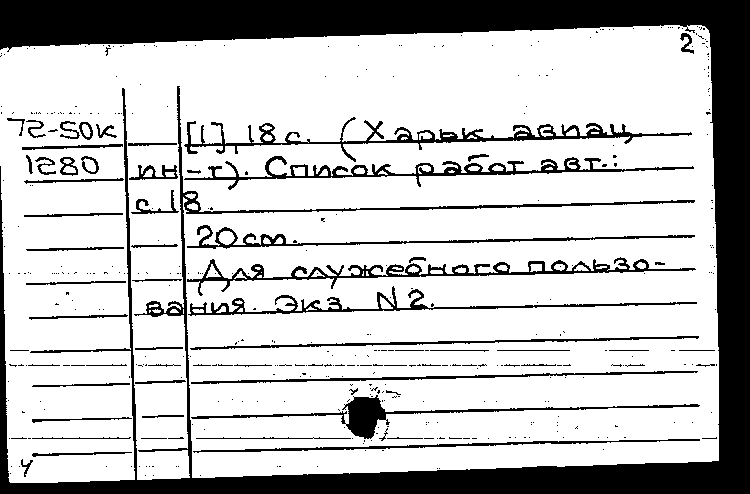 2
72-50к [1], 18 с. (Харьк. авиац.
1280 ин-т). Список работ авт.:
с. 18.
20 cm.
Для служебного пользо-
вания. Экз. N 2.